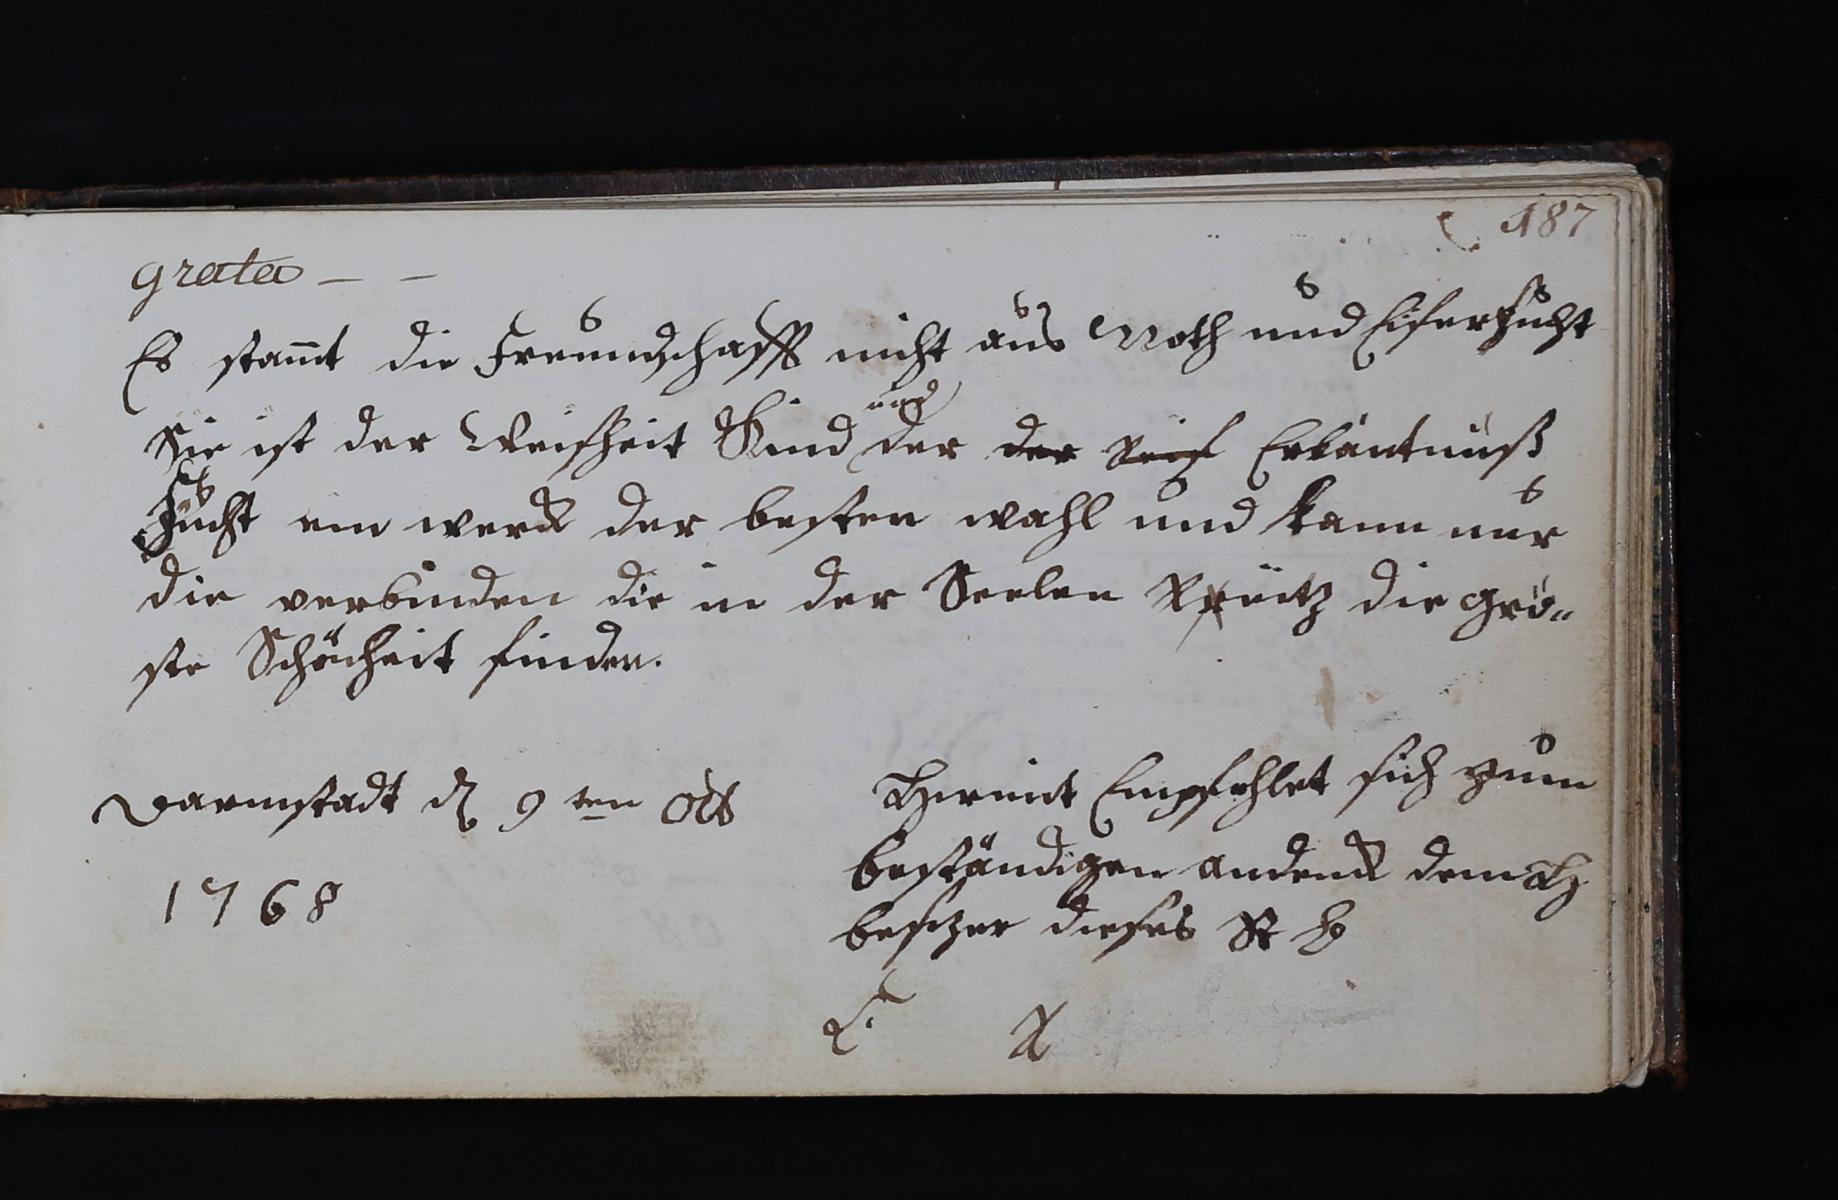 187
grata — —
Es stam̄t die Freundschafft nicht aus Noth und Eifersucht
Sie ist der Weisheit Kind und der der Erkäntnuß
Frucht ein werck der besten wahl und kann nur
die verbinden die in der Seelen die grö„
ste Schönheit finden.
Darmstadt d 9 ten Oct
1768
Hiermit Empfehlet sich zum
beständigen andenck dem H
besitzer dieses St B